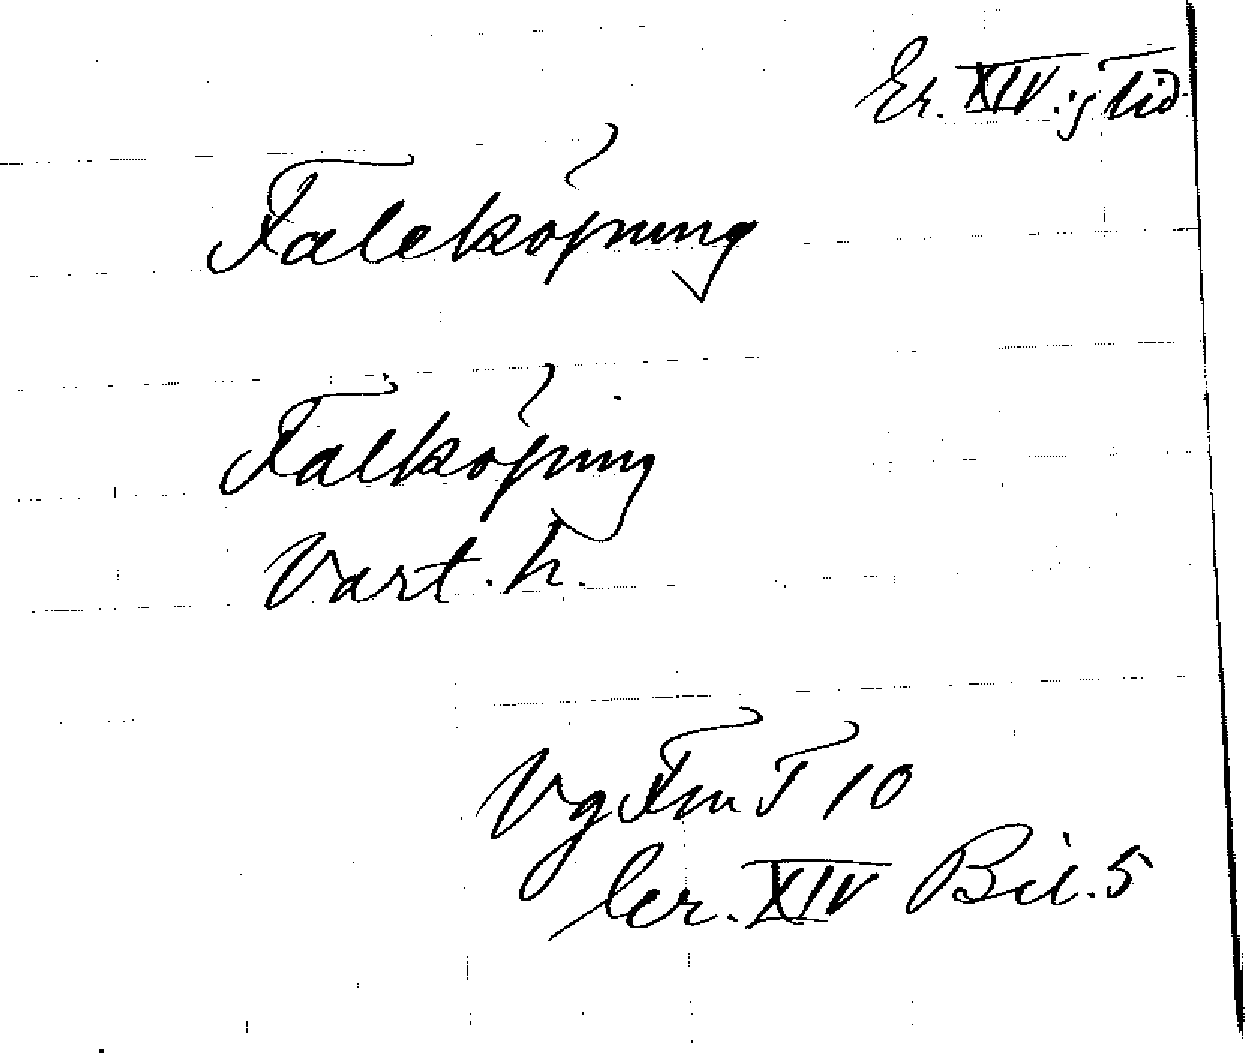 Er. XIV:s tid
Falekøpung
Falkøping
Vart. h.
Vg Fm T 10
Er. XIV Bil. 5